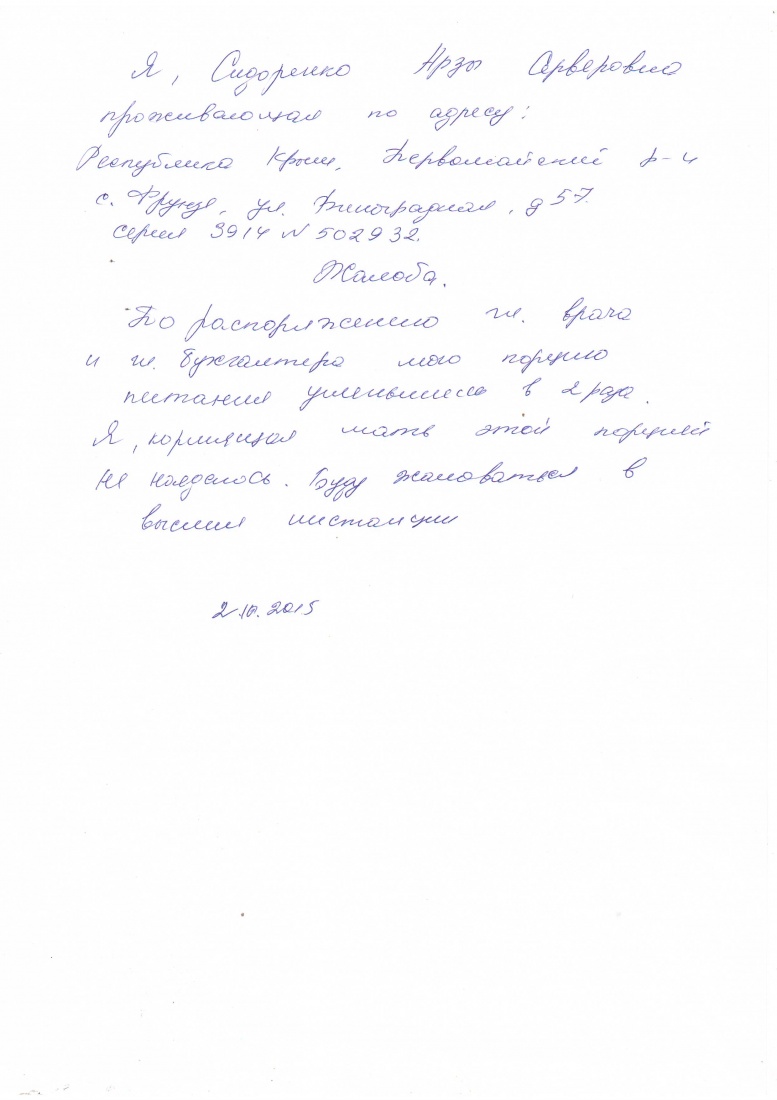 Я, Сидоренко Арзы Серверовна
проживающая по адресу:
Республика Крым, Первомайский р-н
с. Фрунзе, ул. Виноградная, д 57.
серия 3914 N 502932.
Жалоба.
По распоряжению гл. врача
и гл. бухгалтера мою порцию
питания уменьшили в 2 раза.
Я, кормящая мать этой порцией
не наедаюсь. Буду жаловаться в
высшии инстанции
2.10.2015